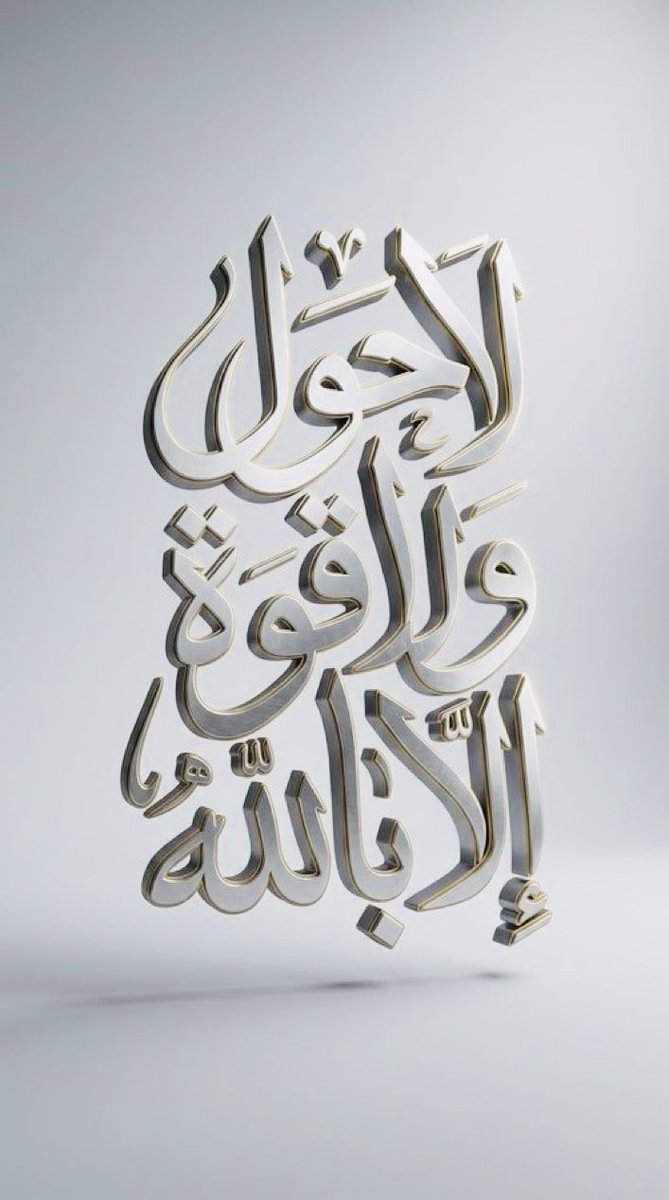 لَا حَوْلَ
وَلَا قُوَّةَ
إِلَّا بِاللَّهِ